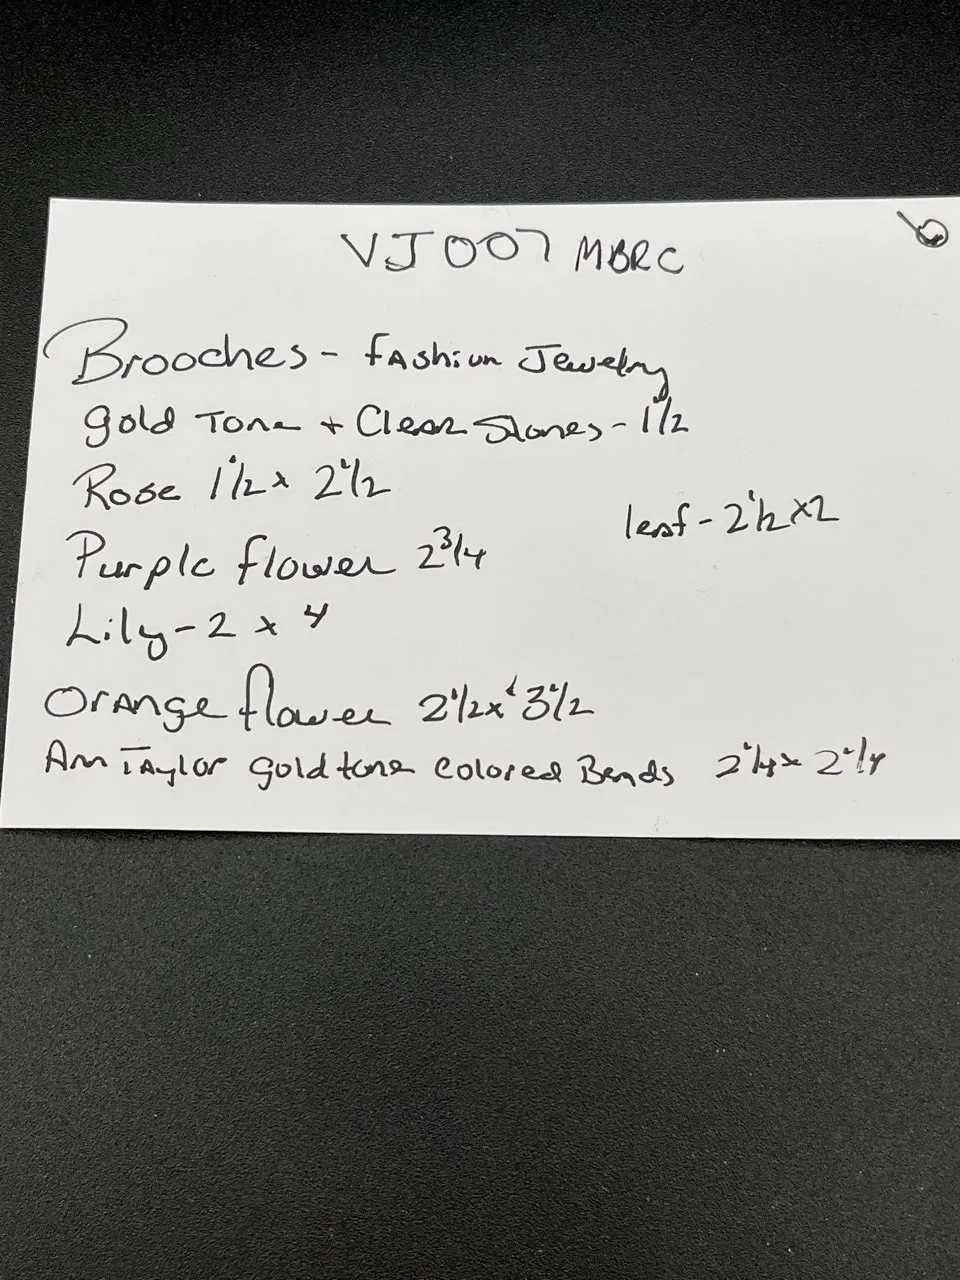 VJ007 MBRC
Brooches - fashion Jewelry
gold Tone + Clear Stones - 1 1/2
Rose 1 1/2 x 2 1/2
leaf - 2 1/2 x 2
Purple flower 2 3/4
Lily - 2 x 4
Orange flower 2 1/2 x 3 1/2
Ann Taylor goldtone Colored Beads 2 1/4 x 2 1/4